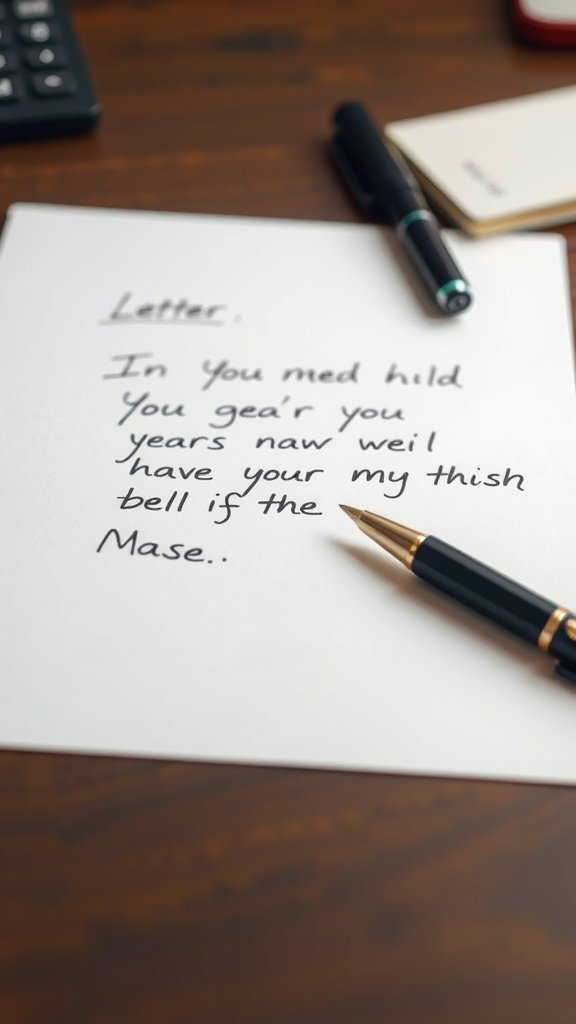 Letter.
In You med hild
You gea'r you
years naw weil
have your my thish
bell if the
Mase..